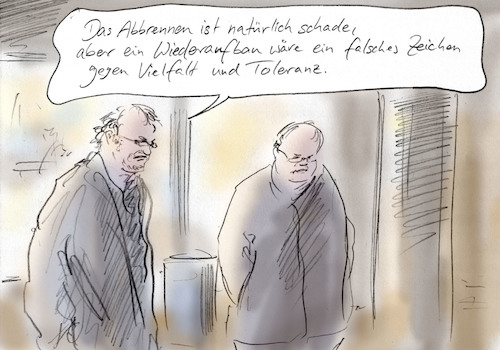 Das Abbrennen ist natürlich schade,
aber ein Wiederaufbau wäre ein falsches Zeichen
gegen Vielfalt und Toleranz.